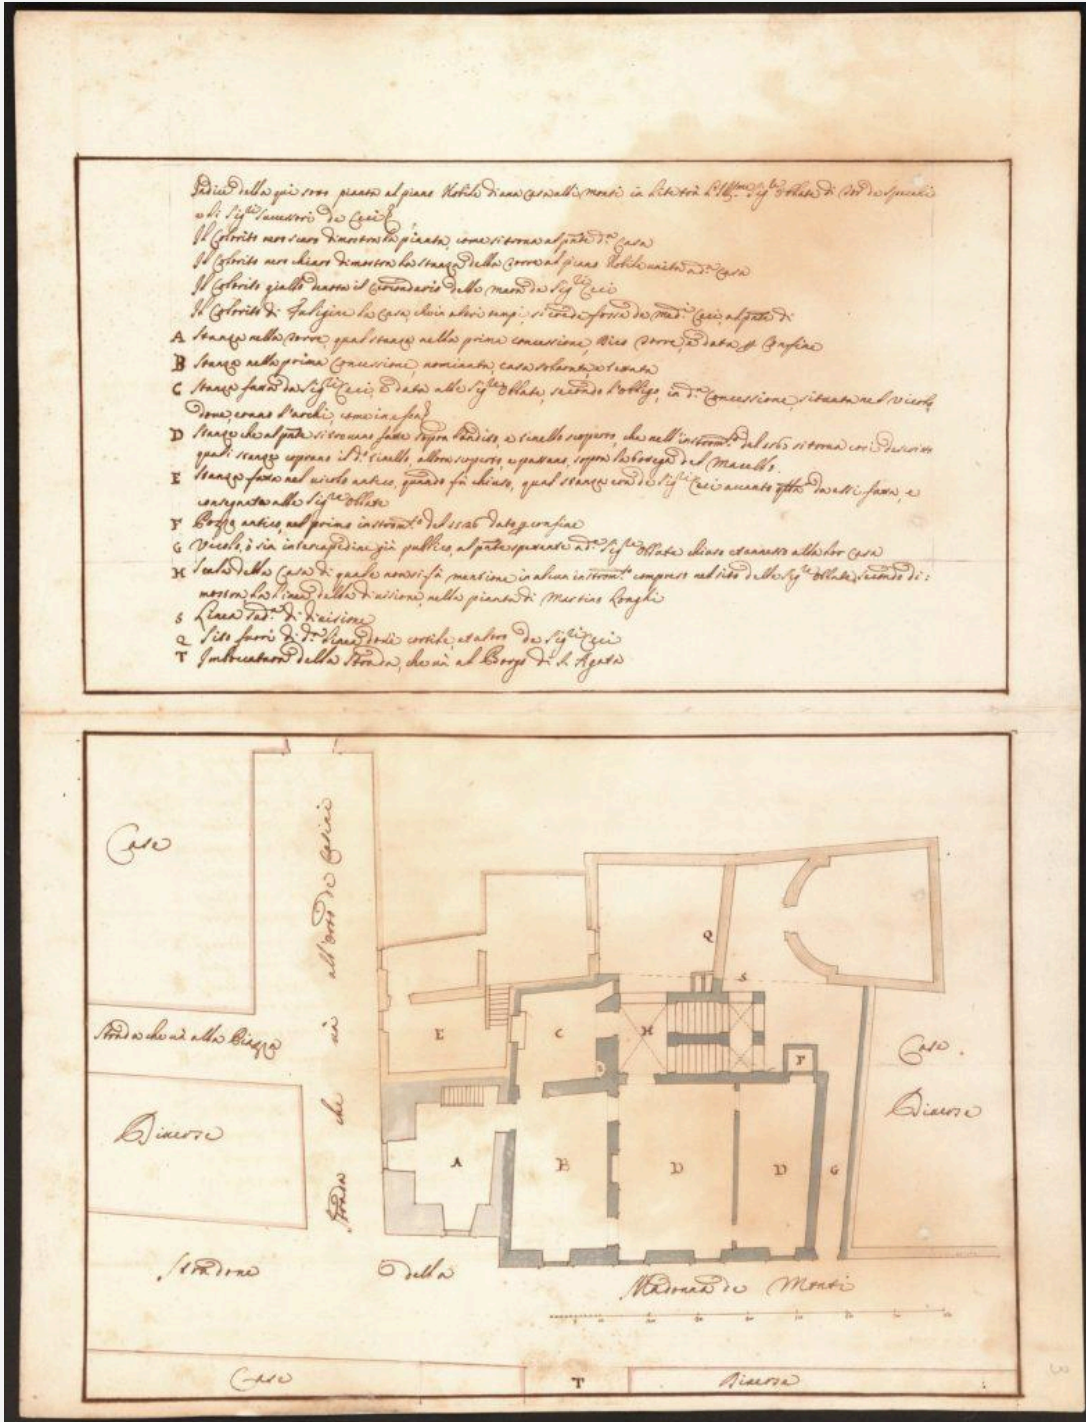 Indice della qui sotto pianta al piano Nobile di una casa alli monti in lite trà l'Ill.me Sig.re Oblate di Tor de Specchi
e li Sig.ri Successori de Ceci
Il Colorito nero scuro dimostra la pianta, come si trova al pnte d.a Casa
Il Colorito nero chiaro dimostra la stanza della torre al piano Nobile unita a d.a Casa
Il Colorito giallo denota il Circondario delle mura de Sig.ri Ceci
Il Colorito di Fuligine la Casa, che in altri tempi si crede fosse de med.i Ceci, al pnte di
A Stanza nella torre, qual stanza nella prima concessione, dico torre, è data p Confine
B Stanza nella prima Concessione, nominata, casa solarata, e tettata
C Stanza fatta da Sig.ri Ceci, e data alle Sig.re Oblate, secondo l'obligo, in d.a Concessione, situata nel vicolo,
dove, erano l'archi, come in essa
D Stanze che al pnte si trovano fatte sopra l'andito, e tinello scoperto, che nell'instrom.to del si trova così descritto
quali stanze coprono il d.o tinello, allora scoperto, e passano, sopra la bottega del Macello.
E Stanza fatta nel vicolo antico, quando fù chiuso, qual stanza era de Sig.ri Ceci accanto qlla da essi fatta, e
consegnata alle Sig.re Oblate
F Pozzo antico, nel primo instrom.to del 1526 dato p confine
G Vicolo, ò sia intercapedine già publico, al pnte spettante a d.e Sig.re Oblate chiuso et annesso alla lor Casa
H Scala della Casa di quale non si fà mentione in alcun instrom.to compresa nel sito delle Sig.re Oblate, secondo di:
mostra la linea della divisione, nella pianta di Martino Longhi
S Linea sud.a di divisione
Q Sito fuori di d.a linea dov'è cortile, et altro de Sig.ri Ceci
T Imboccatura della Strada, che và al Borgo di S. Agata
Case
Strada che và all'Orto de
Strada che và alla Piazza
Diverse
Q
S
E
C
H
F
Case
Diverse
A
B
D
D
G
Stradone della Madonna de Monti
Case
T
Diverse